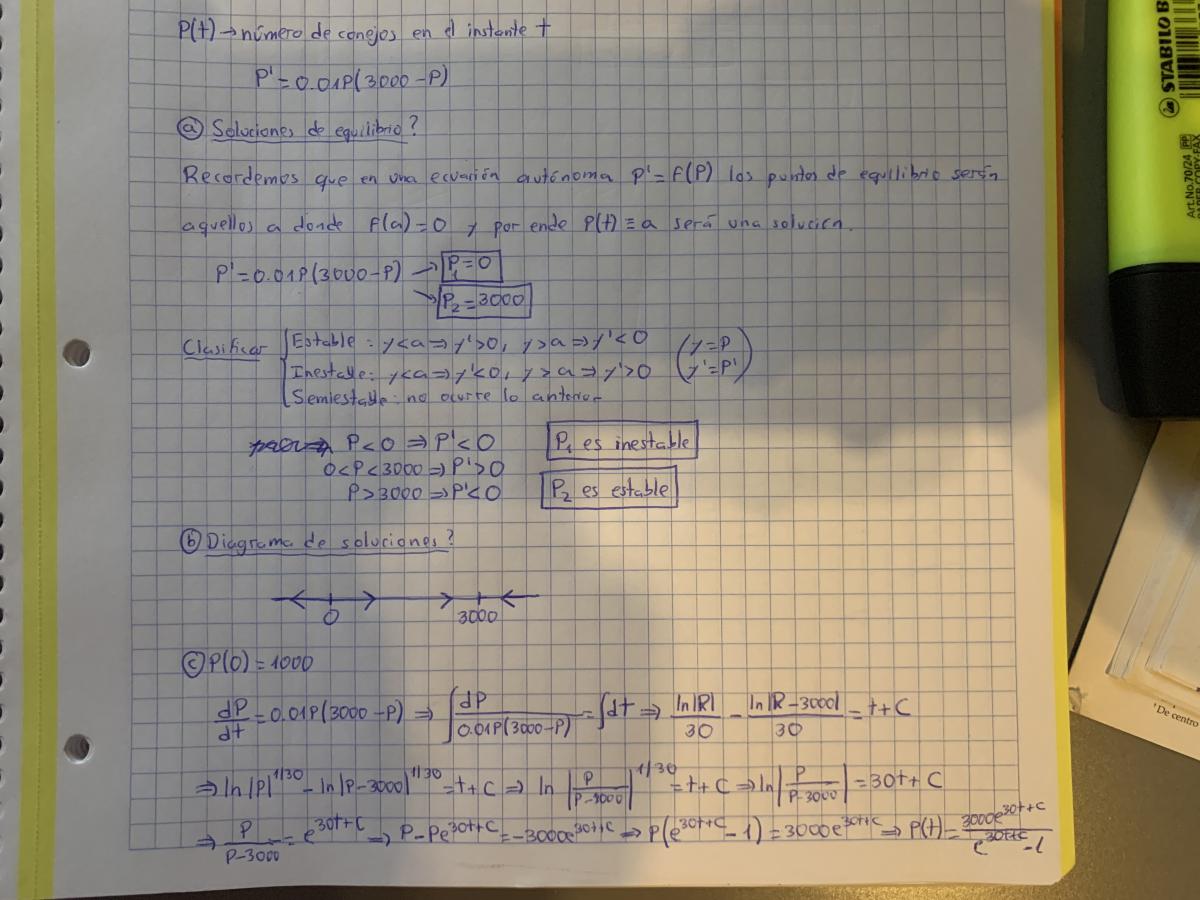 P(t) → número de conejos en el instante t
P' = 0.01P(3000 - P)
ⓐ Soluciones de equilibrio?
Recordemos que en una ecuación autónoma P' = f(P) los puntos de equilibrio serán
aquellos a donde f(a) = 0 y por ende P(t) ≡ a será una solución.
P' = 0.01P(3000 - P) → P₁ = 0
→ P₂ = 3000
Clasificar { Estable: y < a ⇒ y' > 0, y > a ⇒ y' < 0 (y = P
Inestable: y < a ⇒ y' < 0, y > a ⇒ y' > 0 y' = P')
Semiestable: no ocurre lo anterior
P < 0 ⇒ P' < 0 P₁ es inestable
0 < P < 3000 ⇒ P' > 0
P > 3000 ⇒ P' < 0 P₂ es estable
ⓑ Diagrama de soluciones?
0 3000
ⓒ P(0) = 1000
dP/dt = 0.01P(3000 - P) ⇒ ∫ dP/(0.01P(3000 - P)) = ∫dt ⇒ ln|P|/30 - ln|P - 3000|/30 = t + C
⇒ ln|P|^1/30 - ln|P - 3000|^1/30 = t + C ⇒ ln|P/(P - 3000)|^1/30 = t + C ⇒ ln|P/(P - 3000)| = 30t + C
⇒ P/(P - 3000) = e^(30t + C) ⇒ P - Pe^(30t + C) = -3000e^(30t + C) ⇒ P(e^(30t + C) - 1) = 3000e^(30t + C) ⇒ P(t) = 3000e^(30t + C)/(e^(30t + C) - 1)
STABILO B
Art.No.70/24
PP
'De centro